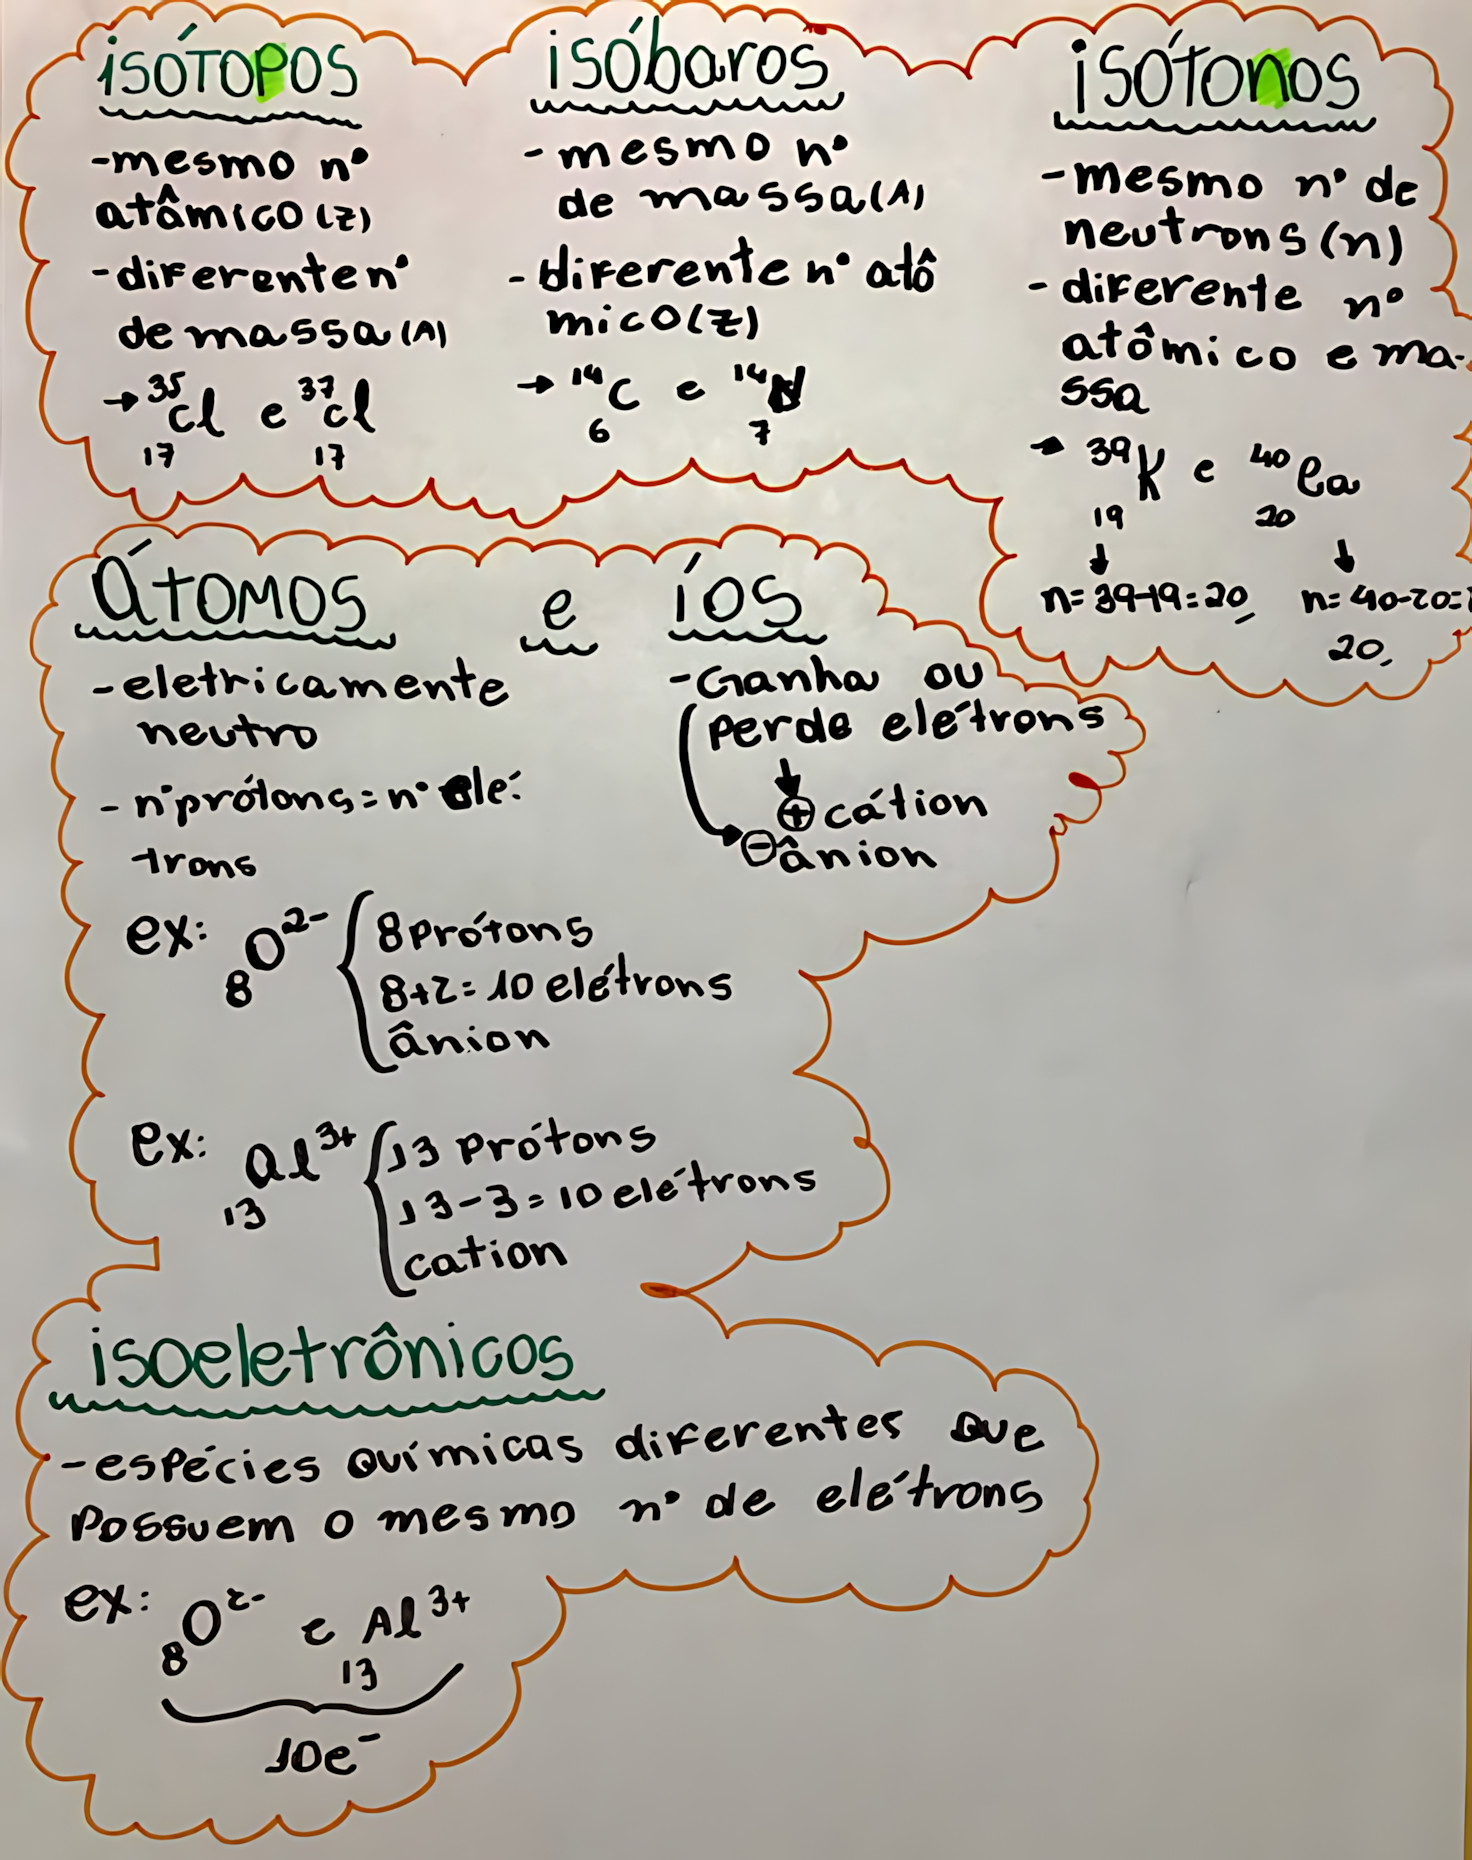 isótopos
-mesmo nº
atômico(z)
-diferente nº
de massa(A)
→ ³⁵Cl e ³⁷Cl
17 17
isóbaros
-mesmo nº
de massa(A)
-diferente nº atô
mico(z)
→ ¹⁴C e ¹⁴N
6 7
isótonos
-mesmo nº de
neutrons(n)
-diferente nº
atômico e ma-
ssa
→ ³⁹K e ⁴⁰Ca
19 20
↓ ↓
n=39-19=20, n=40-20=
20,
átomos e íos
-eletricamente
neutro
-nºprótons=nº elé-
trons
-Ganha ou
perde elétrons
↓
⊕cátion
⊖ânion
ex: ₈O²⁻ { 8 prótons
8+2=10 elétrons
ânion
ex: ₁₃Al³⁺ { 13 prótons
13-3=10 elétrons
cation
isoeletrônicos
-espécies químicas diferentes que
possuem o mesmo nº de elétrons
ex: ₈O²⁻ e ₁₃Al³⁺
10e⁻